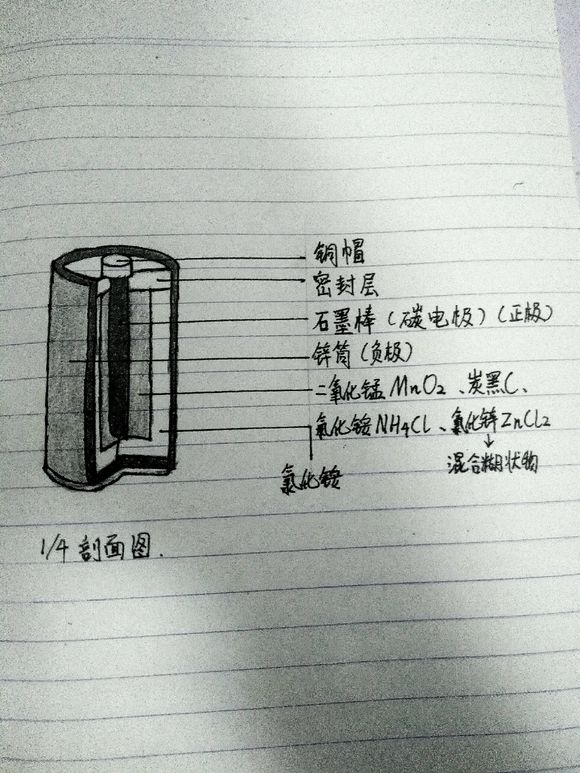 铜帽
密封层
石墨棒(碳电极)(正极)
锌筒(负极)
二氧化锰MnO2、炭黑C、
氯化铵NH4Cl、氯化锌ZnCl2
混合糊状物
氯化铵
1/4剖面图.